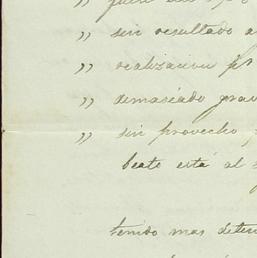 ,,
,, sin resultado a
,, realizacion pr
,, demasiado grav
,, sin provecho
beate está al
tenido mas deten